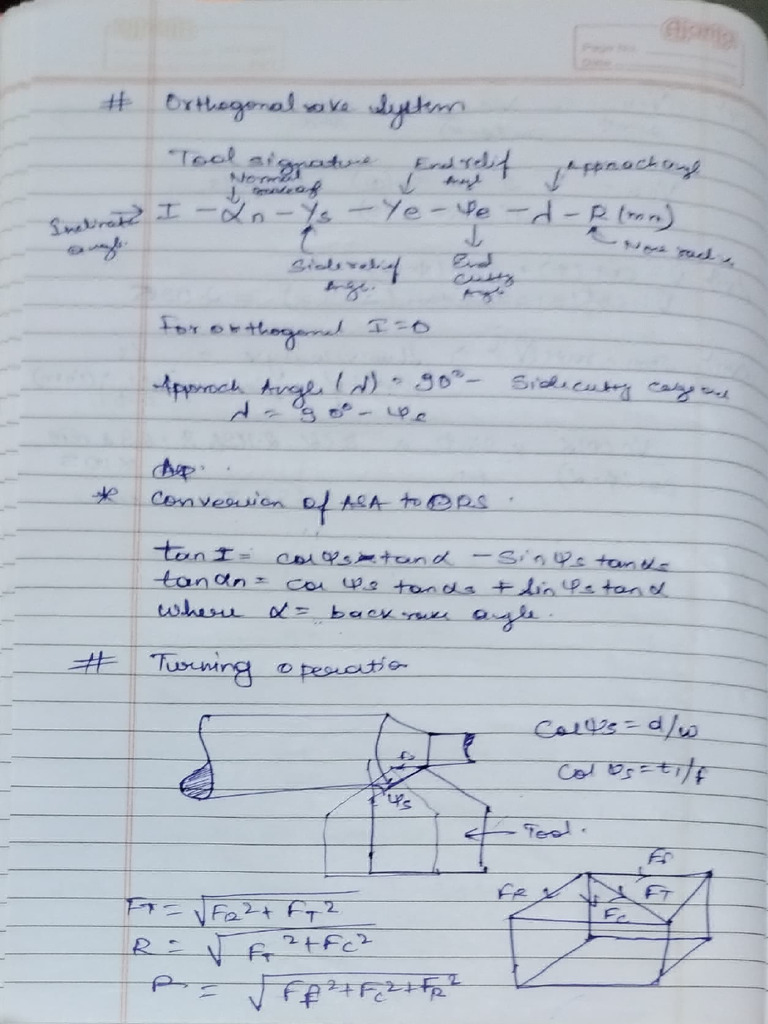 Page No.
Date
# Orthogonal rake System
Tool signature
Normal rake
End relief Angl
Approach angl
Inclinate angle
I - αn - γs - γe - ψe - λ - R (mm)
Side relief Angl.
End Cutty Angl
Nose radius
For orthogonal I = 0
Approach Angle (λ) = 90° - Side cutty edge
λ = 90° - ψe
* Conversion of ASA to ORS.
tan I = cos ψs tan α - Sin ψs tan αs
tan αn = cos ψs tan αs + Sin ψs tan α
where α = back rake angle.
# Turning operation
Cos ψs = d/w
Cos ψs = t1/f
ψs
Tool.
FT = √FR² + FT²
R = √FT² + FC²
R = √Ff² + Fc² + FR²
FR
Ff
FT
Fc